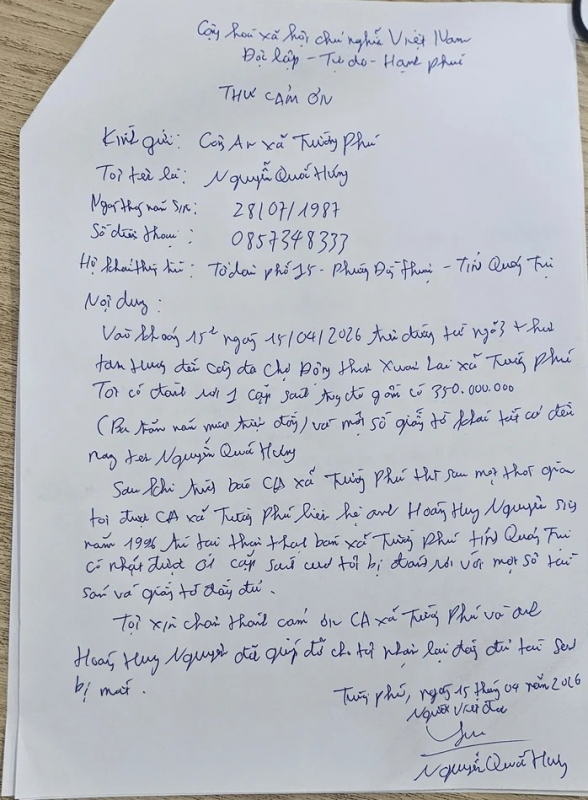 Cộng hoà xã hội chủ nghĩa Việt Nam
Độc lập - Tự do - Hạnh phúc
THƯ CẢM ƠN
Kính gửi: Công An xã Trường Phú
Tôi tên là: Nguyễn Quốc Hưng
Ngày tháng năm sinh: 28/07/1987
Số điện thoại: 0857348333
Hộ khẩu thường trú: Tổ dân phố 15 - Phường Đồng Thuận - Tỉnh Quảng Trị
Nội dung:
Vào khoảng 15h ngày 15/04/2026 trên đường từ ngã 3 thôn
đến cây đa Chợ Động thôn Xuân Lai xã Trường Phú
Tôi có đánh rơi 1 cặp sách trong đó gồm có 350.000.000
(Ba trăm năm mươi triệu đồng) và một số giấy tờ khác tất cả đều
mang tên Nguyễn Quốc Hưng
Sau khi trình báo CA xã Trường Phú thì sau một thời gian
tôi được CA xã Trường Phú liên hệ anh Hoàng Huy Nguyên sinh
năm 1996 trú tại thôn xã Trường Phú tỉnh Quảng Trị
có nhặt được 01 cặp sách tôi bị đánh rơi với một số tài
sản và giấy tờ đầy đủ.
Tôi xin chân thành cảm ơn CA xã Trường Phú và anh
Hoàng Huy Nguyên đã giúp đỡ cho tôi nhận lại đầy đủ tài sản
bị mất.
Trường phú, ngày 15 tháng 04 năm 2026
Người viết đơn
Nguyễn Quốc Hưng